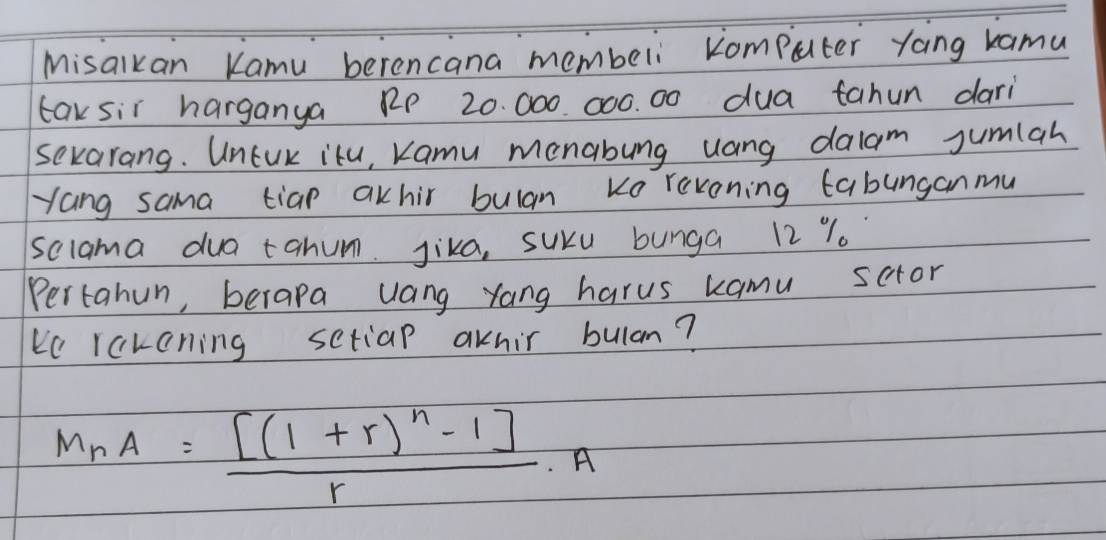 Misalkan kamu berencana membeli komputer yang kamu
taksir harganya Rp 20.000.000.00 dua tahun dari
sekarang. Untuk itu, kamu menabung uang dalam jumlah
yang sama tiap akhir bulan ke rekening tabunganmu
selama dua tahun. jika, suku bunga 12 %
Pertahun, berapa uang yang harus kamu setor
ke rekening setiap akhir bulan?
MnA = [(1 + r)^n - 1] / r . A